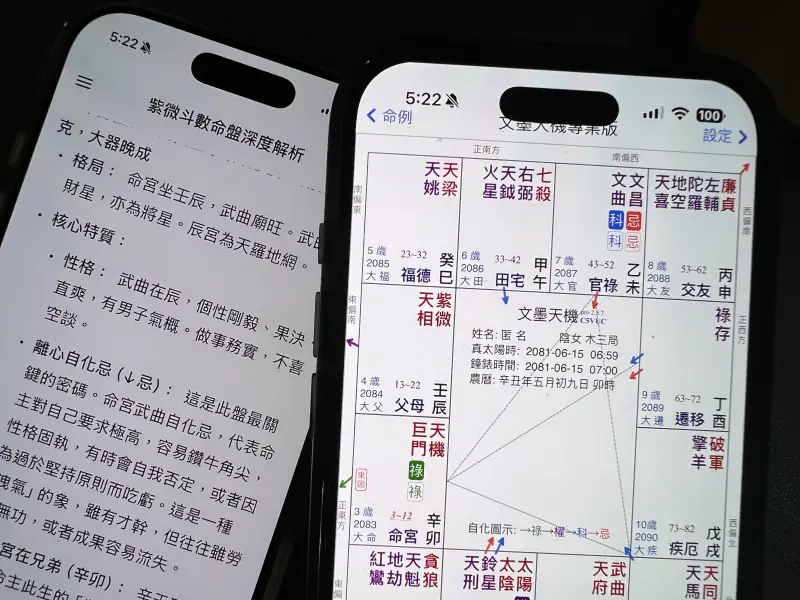 5:22
紫微斗數命盤深度解析
克，大器晚成
• 格局： 命宮坐壬辰，武曲廟旺。武
財星，亦為將星。辰宮為天羅地網。
• 核心特質：
• 性格： 武曲在辰，個性剛毅、果決
直爽，有男子氣概。做事務實，不喜
空談。
• 離心自化忌 (↓忌)： 這是此盤最關
鍵的密碼。命宮武曲自化忌，代表命
主對自己要求極高，容易鑽牛角尖，
性格固執，有時會自我否定，或者因
為過於堅持原則而吃虧。這是一種
洩氣」的象，雖有才幹，但往往雖勞
無功，或者成果容易流失。
宮在兄弟 (辛卯)：
5:22
100
命例
文墨天機專業版
設定
正南方
南偏西
南偏東
天梁
天姚
5 歲
2085
大福
23~32
福德
癸巳
七殺
右弼
天鉞
火星
6 歲
2086
大田
33~42
田宅
甲午
文昌
文曲
忌
科
忌
科
7 歲
2087
大官
43~52
官祿
乙未
廉貞
左輔
陀羅
地空
天喜
8 歲
2088
大友
53~62
交友
丙申
西偏南
東偏南
紫微
天相
4 歲
2084
大父
13~22
父母
壬辰
文墨天機
CSVUC
姓名: 匿名 陰女 木三局
真太陽時: 2081-06-15 06:59
鐘錶時間: 2081-06-15 07:00
農曆: 辛丑年五月初九日 卯時
自化圖示: →祿→權→科→忌
祿存
9 歲
2089
大遷
63~72
遷移
丁酉
正西方
天機
巨門
祿
祿
來因
3 歲
2083
大命
3~12
命宮
辛卯
正東方
破軍
擎羊
10歲
2090
大疾
73~82
疾厄
戊戌
西偏北
東偏
貪狼
天魁
地劫
紅鸞
太陽
太陰
鈴星
天刑
武曲
天府
天同
天馬